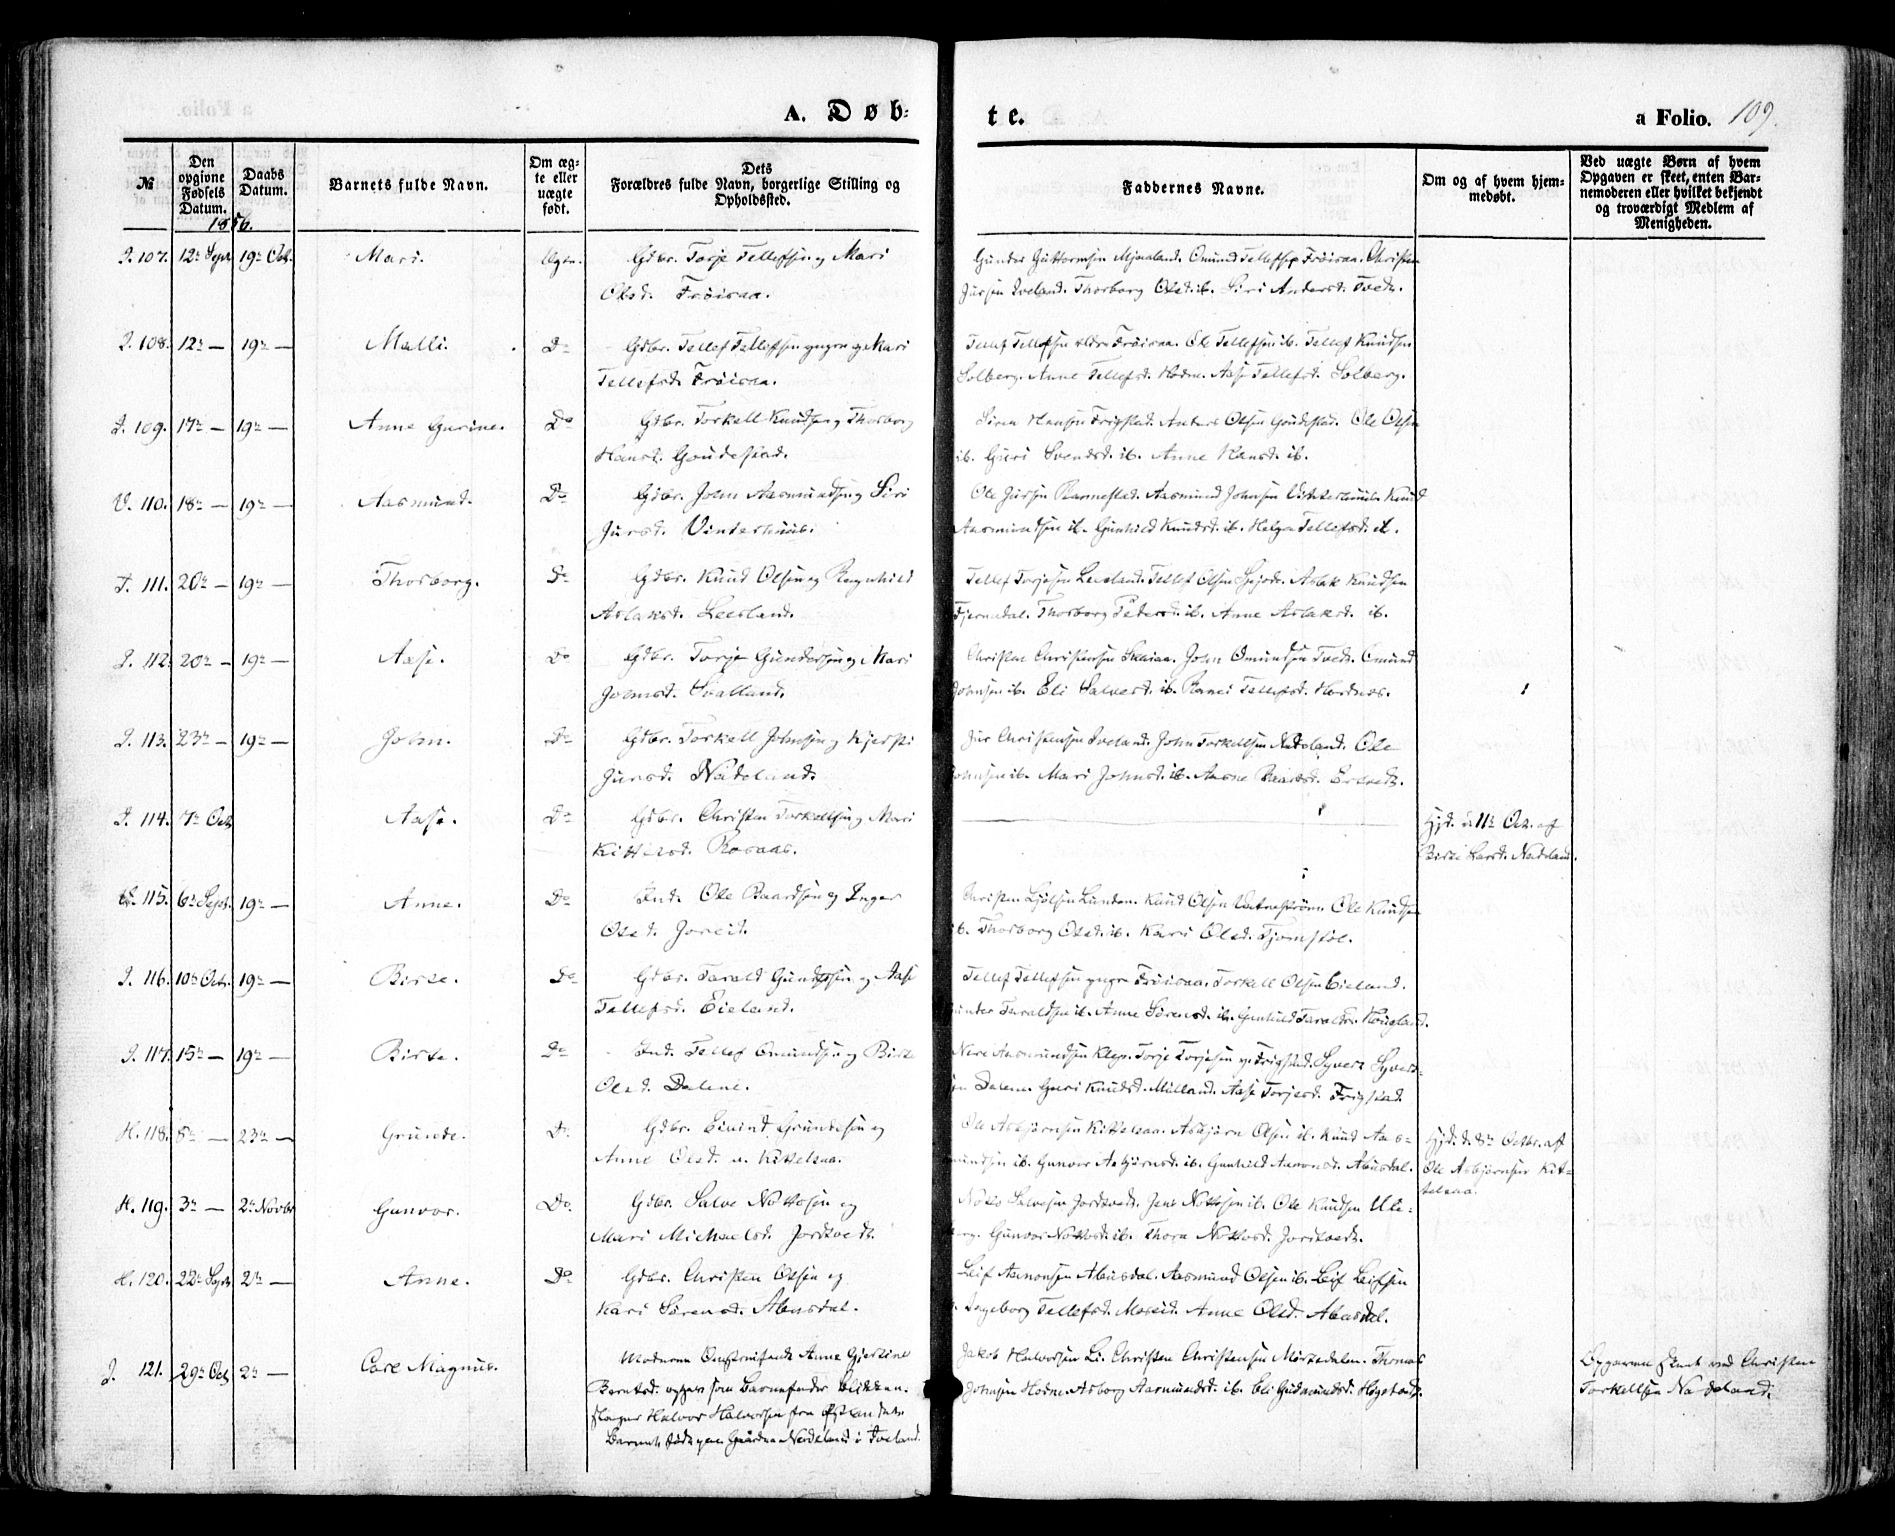 A. Døb-
te.
a Folio. 109.
№
Den opgivne Fødsels Datum.
Daabs Datum.
Barnets fulde Navn.
Om ægte eller uægte født.
Dets Forældres fulde Navn, borgerlige Stilling og Opholdssted.
Faddernes Navne.
Om og af hvem hjemmedøbt.
Ved uægte Børn af hvem Opgaven er skeet, enten Barnemoderen eller hvilket bekjendt og troværdigt Medlem af Menigheden.
1856.
J. 107. 12te Sept. 19de Oct. Mari. Ægte. Gdbr. Torje Tellefsen og Mari
Olsd. Frøisaa.
Gunder Guttormsen Mjaaland. Omund Tellefsen Frøisaa. Christen
Jürsen Iveland. Thorborg Olsd. ib. Siri Andersd. Tvedt.
J. 108. 12te — 19de — Malli. Do Gdbr. Tellef Tellefsen yngre og Mari
Tellefsd. Frøisaa.
Tellef Tellefsen ældre Frøisaa. Ole Tellefsen ib. Tellef Knudsen
Solberg. Anne Tellefsd. Hodne. Aase Tellefsd. Solberg.
J. 109. 17de — 19de — Anne Gurine. Do Gdbr. Torkell Knudsen og Thorborg
Hansd. Goudestad.
Søren Hansen Frigstad. Anders Olsen Goudestad. Ole Olsen
ib. Guri Svendsd. ib. Anne Hansd. ib.
V. 110. 18de — 19de — Aasmund. Do Gdbr. John Aasmundsen og Siri
Jürsd. Vinterhuus.
Ole Jürsen Ramestad. Aasmund Johnsen Vinterhuus. Knud
Aasmundsen ib. Gunhild Knudsd. ib. Helga Tellefsd. ib.
J. 111. 20de — 19de — Thorborg. Do Gdbr. Knud Olsen og Ragnhild
Aslaksd. Leesland.
Tellef Torjesen Leesland. Tellef Olsen Aslak Knudsen
Thorborg Pedersd. ib. Anne Aslaksd. ib.
J. 112. 20de — 19de — Aase. Do Gdbr. Torje Gundersen og Mari
Johnsd. Svalland.
Christen Christensen Skaiaa. John Omundsen Tvedt. Omund
Johnsen ib. Eli Salvesd. ib. Tellefsd. Hordnæs.
J. 113. 23de — 19de — John. Do Gdbr. Torkell Johnsen og Kjersti
Jürsd. Nædeland.
Jür Christensen Iveland. John Torkellsen Nædeland. Ole
Johnsen ib. Mari Johnsd. ib. Aasne
J. 114. 7de Oct. Aase. Do Gdbr. Christen Torkellsen og Mari
Kittelsd. Rosaas.
Hjd. d. 11te Oct. af
Birte Larsd. Nædeland.
V. 115. 6te Sept. 19de — Anne. Do Ind. Ole Baardsen og Inger
Olsd. Joreid.
Christen Ljølsen Lunden. Knud Olsen Vatnestrøm. Ole Knudsen
ib. Thorborg Olsd. ib. Kari Olsd. Tjomstøl.
J. 116. 10de Oct. 19de — Birte. Do Gdbr. Tarald Gundersen og Aase
Tellefsd. Eieland.
Tellef Tellefsen yngre Frøisaa. Torkell Olsen Eieland.
Gunder Taraldsen ib. Anne Sørensd. ib. Gunhild Taraldsd.
J. 117. 15de — 19de — Birte. Do Ind. Tellef Omundsen og Birte
Olsd. Dalene.
Aasmundsen Klep. Torje Torjesen Frigstad. Syvert Syvert-
sen Dalene. Guri Knudsd. Mølland. Aase Torjesd. Frigstad
H. 118. 8de — 23de — Grunde. Do Gdbr. Eivind Grundesen og
Anne Olsd. Kittelsaa.
Ole Asbjørnsen Kittelsaa. Asbjørn Olsen ib. Knud Aas-
mundsen ib. Gunvor Asbjørnsd. ib. Gunhild Aanonsd. Abusdal.
Hjd. d. 8de Octbr. af
Ole Asbjørnsen Kit-
telsaa.
H. 119. 3de — 2de Novbr Gunvor. Do Gdbr. Salve Nottosen og
Mari Michaelsd. Jortvedt.
Notto Salvesen Jortvedt. Jens Nottosen ib. Ole Knudsen Ule-
berg. Gunvor Nottosd. ib. Thora Nottosd. Jortvedt.
H. 120. 22de Sept. 2de — Anne. Do Gdbr. Christen Olsen og
Kari Sørensd. Abusdal.
Leif Aanonsen Abusdal. Aasmund Olsen ib. Leif Leifsen
Ingeborg Tellefsd. Moseid. Anne Olsd. Abusdal.
J. 121. 29de Oct. 2de — Carl Magnus. Moderen Omstreifende Anne Gjertine
Berntsd. opgav som Barnefader Blikken-
slager Halvor Halvorsen fra Østlandet.
Barnet født paa Gaarden Nædeland i Iveland.
Jakob Halvorsen Li. Christen Christensen Mørtedalen. Thomas
Johnsen Hodne. Asborg Aasmundsd. ib. Eli Gudmundsd. Høgstad.
Opgaven skeet ved Christen
Torkellsen Nædeland.